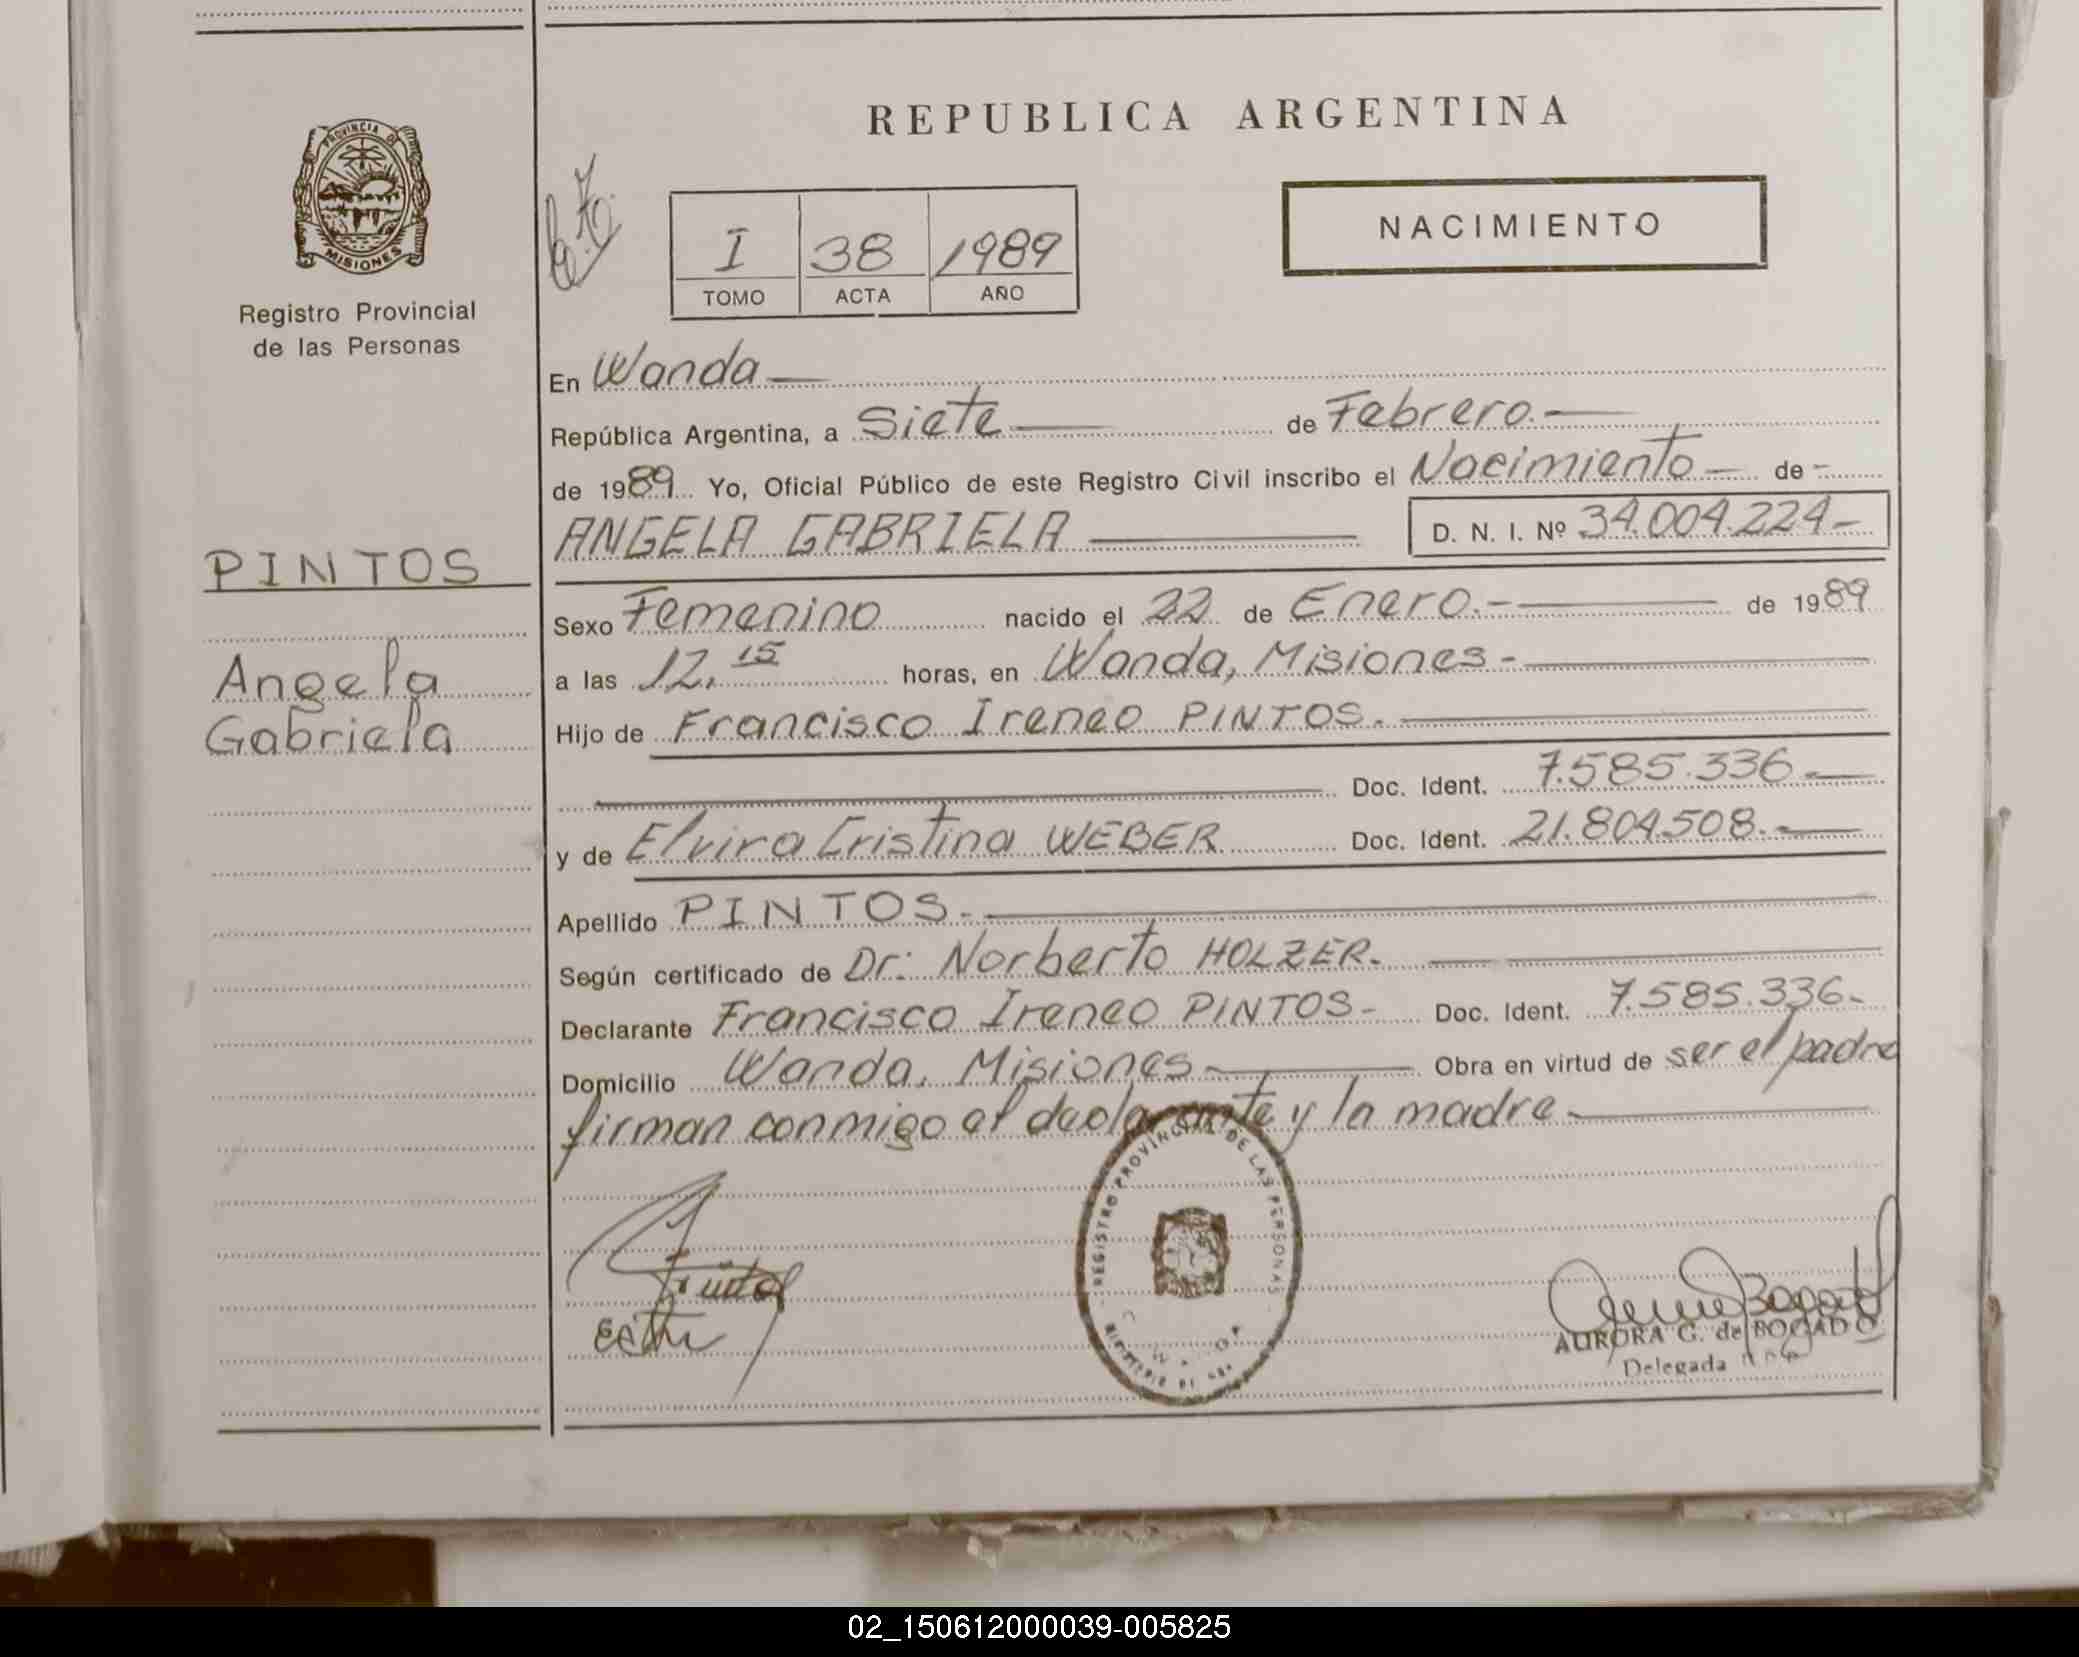 REPUBLICA ARGENTINA
PROVINCIA DE
MISIONES
Registro Provincial
de las Personas
NACIMIENTO
I 38 1989
TOMO ACTA AÑO
En Wanda
República Argentina, a Siete de Febrero.
de 1989 Yo, Oficial Público de este Registro Civil inscribo el Nacimiento de
ANGELA GABRIELA D. N. I. Nº 34.004.224
PINTOS
Angela
Gabriela
Sexo Femenino nacido el 22 de Enero. de 1989
a las 12,15 horas, en Wanda, Misiones
Hijo de Francisco Ireneo PINTOS.
Doc. Ident. 7.585.336
y de Elvira Cristina WEBER Doc. Ident. 21.804.508.
Apellido PINTOS.
Según certificado de Dr: Norberto HOLZER.
Declarante Francisco Ireneo PINTOS Doc. Ident. 7.585.336
Domicilio Wanda, Misiones Obra en virtud de ser el padre
firman conmigo el declarante y la madre
REGISTRO PROVINCIAL DE LAS PERSONAS
AURORA G. de BOGADO
Delegada
02_150612000039-005825